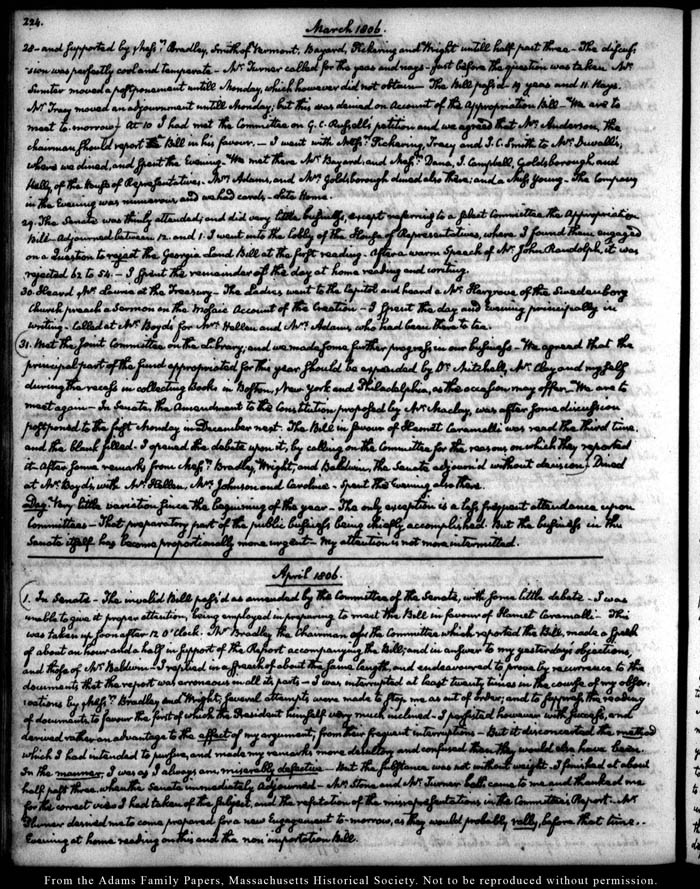 224.
March 1806.
28 - and supported by Mess.rs Bradley, Smith of Vermont, Bayard, Pickering and Wright untill half past three - The discus-
-sion was perfectly cool and temperate - Mr. Turner called for the yeas and nays - just before the question was taken Mr.
Sumter moved a postponement untill Monday, which however did not obtain - The Bill pass'd - 19 yeas and 11 Nays.
Mr. Tracy moved an adjournment untill Monday; but this was denied on Account of the Appropriation Bill - We are to
meet to-morrow - At 10 I had met the Committee on G. C. Russell's petition and we agreed that Mr. Anderson, the
chairman should report the Bill in his favour. - I went with Mess.rs Pickering, Tracy and J. C. Smith to Mr. Duvall's;
where we dined, and spent the Evening - We met there Mr. Bayard; and Mess.rs Dana, J. Campbell, Goldsborough and
of the House of Representatives. Mrs. Adams, and Mrs. Goldsborough dined also there; and a Miss Young - The Company
in the Evening was numerous, and we had cards - late Home.
29. The Senate was thinly attended; and did very little business, except referring to a select Committee the Appropriation
Bill - Adjourned between 12. and 1. I went into the lobby of the House of Representatives, where I found them engaged
on a Question to reject the Georgia Land Bill at the first reading. After a warm Speech of Mr. John Randolph, it was
rejected 62 to 54. - I spent the remainder of the day at home reading and writing.
30. Heard Mr. Laurie at the Treasury - The Ladies went to the Capitol and heard a Mr. Hargrove of the Swedenborg
Church preach a Sermon on the Mosaic Account of the Creation - I spent the day and Evening principally in
writing - Called at Mr. Boyd's for Mrs. Hellen and Mrs. Adams who had been there to tea.
31. Met the Joint Committee on the Library, and we made some further progress in our business - We agreed that the
principal part of the fund appropriated for this year should be expended by Dr. Mitchell, Mr. Clay and myself
during the recess in collecting Books in Boston, New York and Philadelphia, as the occasion may offer - We are to
meet again - In Senate, the Amendment to the Constitution proposed by Mr. Maclay, was after some discussion
postponed to the first Monday in December next. The Bill in favour of Hamet Caramalli was read the third time,
and the blank filled. I opened the debate upon it, by calling on the Committee for the reasons on which they reported
it - After some remarks from Mess.rs Bradley, Wright, and Baldwin, the Senate adjourn'd without decision. Dined
at Mr. Boyd's, with Mr. Hellen, Mrs. Johnson and Caroline - Spent the Evening also there.
Day. Very little variation since the beginning of the year - The only exception is a less frequent attendance upon
Committees - That preparatory part of the public business being chiefly accomplished. But the business in the
Senate itself has become proportionally more urgent - My attention is not more intermitted.
April 1806.
1. In Senate - The invalid Bill pass'd as amended by the Committee of the Senate, with some little debate - I was
unable to give it proper attention, being employed in preparing to meet the Bill in favour of Hamet Caramalli - This
was taken up soon after 12 O'Clock. Mr. Bradley the Chairman of the Committee which reported this Bill, made a speech
of about an hour and a half in support of the Report accompanying the Bill; and in answer to my yesterday's objections,
and those of Mr. Baldwin - I replied in a speech of about the same length, and endeavoured to prove by recurrence to the
documents that the report was erroneous in all its parts - I was interrupted at least twenty times in the course of my obser-
vations by Mess.rs Bradley and Wright, several attempts were made to stop me as out of order; and to suppress the reading
of documents, to favour the sort of which the President himself very much inclined - I persisted however with success, and
derived rather an advantage to the effect of my argument, from their frequent interruptions - But it disconcerted the method
which I had intended to pursue, and made my remarks more desultory and confused than they would else have been.
In the manner, I was as I always am, miserably defective - But the substance was not without weight. I finished at about
half past three, when the Senate immediately adjourned - Mr. Stone and Mr. Turner both came to me and thanked me
for the correct view I had taken of the subject, and the refutation of the misrepresentations in the Committee's Report - Mr.
Turner desired me to come prepared for a new Engagement to-morrow, as they would probably rally, before that time. -
Evening at home reading on this and the non importation Bill.
From the Adams Family Papers, Massachusetts Historical Society. Not to be reproduced without permission.